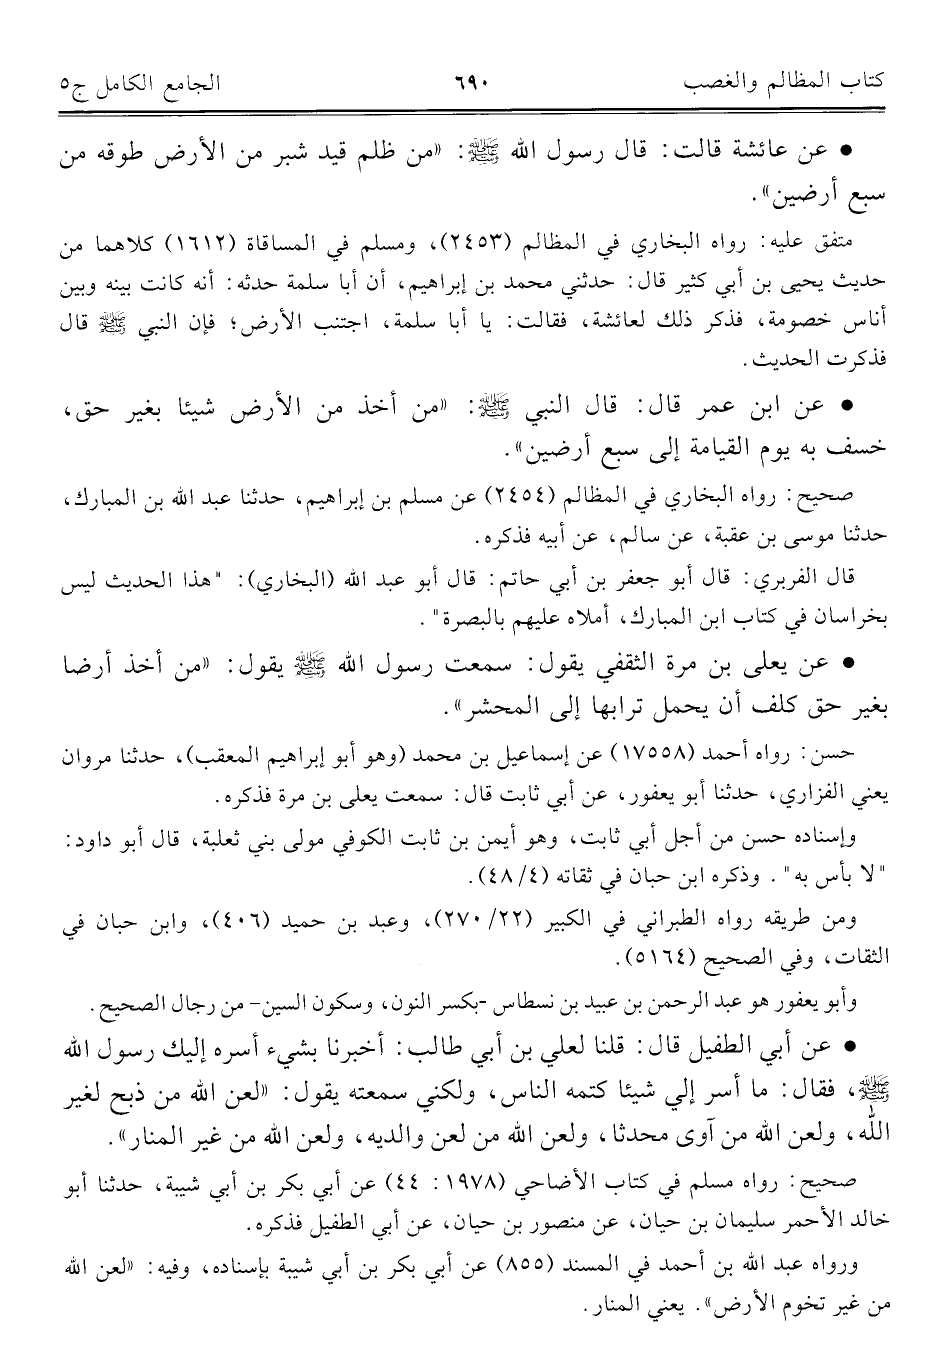 كتاب المظالم والغصب ٦٩٠ الجامع الكامل ج٥
● عن عائشة قالت: قال رسول الله ﷺ: «من ظلم قيد شبر من الأرض طوقه من
سبع أرضين».
متفق عليه: رواه البخاري في المظالم (٢٤٥٣)، ومسلم في المساقاة (١٦١٢) كلاهما من
حديث يحيى بن أبي كثير قال: حدثني محمد بن إبراهيم، أن أبا سلمة حدثه: أنه كانت بينه وبين
أناس خصومة، فذكر ذلك لعائشة، فقالت: يا أبا سلمة، اجتنب الأرض؛ فإن النبي ﷺ قال
فذكرت الحديث.
● عن ابن عمر قال: قال النبي ﷺ: «من أخذ من الأرض شيئا بغير حق،
خسف به يوم القيامة إلى سبع أرضين».
صحيح: رواه البخاري في المظالم (٢٤٥٤) عن مسلم بن إبراهيم، حدثنا عبد الله بن المبارك،
حدثنا موسى بن عقبة، عن سالم، عن أبيه فذكره.
قال الفربري: قال أبو جعفر بن أبي حاتم: قال أبو عبد الله (البخاري): "هذا الحديث ليس
بخراسان في كتاب ابن المبارك، أملاه عليهم بالبصرة".
● عن يعلى بن مرة الثقفي يقول: سمعت رسول الله ﷺ يقول: «من أخذ أرضا
بغير حق كلف أن يحمل ترابها إلى المحشر».
حسن: رواه أحمد (١٧٥٥٨) عن إسماعيل بن محمد (وهو أبو إبراهيم المعقب)، حدثنا مروان
يعني الفزاري، حدثنا أبو يعفور، عن أبي ثابت قال: سمعت يعلى بن مرة فذكره.
وإسناده حسن من أجل أبي ثابت، وهو أيمن بن ثابت الكوفي مولى بني ثعلبة، قال أبو داود:
"لا بأس به". وذكره ابن حبان في ثقاته (٤/ ٤٨).
ومن طريقه رواه الطبراني في الكبير (٢٢/ ٢٧٠)، وعبد بن حميد (٤٠٦)، وابن حبان في
الثقات، وفي الصحيح (٥١٦٤).
وأبو يعفور هو عبد الرحمن بن عبيد بن نسطاس -بكسر النون، وسكون السين- من رجال الصحيح.
● عن أبي الطفيل قال: قلنا لعلي بن أبي طالب: أخبرنا بشيء أسره إليك رسول الله
ﷺ، فقال: ما أسر إلي شيئا كتمه الناس، ولكني سمعته يقول: «لعن الله من ذبح لغير
الله، ولعن الله من آوى محدثا، ولعن الله من لعن والديه، ولعن الله من غير المنار».
صحيح: رواه مسلم في كتاب الأضاحي (١٩٧٨: ٤٤) عن أبي بكر بن أبي شيبة، حدثنا أبو
خالد الأحمر سليمان بن حيان، عن منصور بن حيان، عن أبي الطفيل فذكره.
ورواه عبد الله بن أحمد في المسند (٨٥٥) عن أبي بكر بن أبي شيبة بإسناده، وفيه: «لعن الله
من غير تخوم الأرض». يعني المنار.